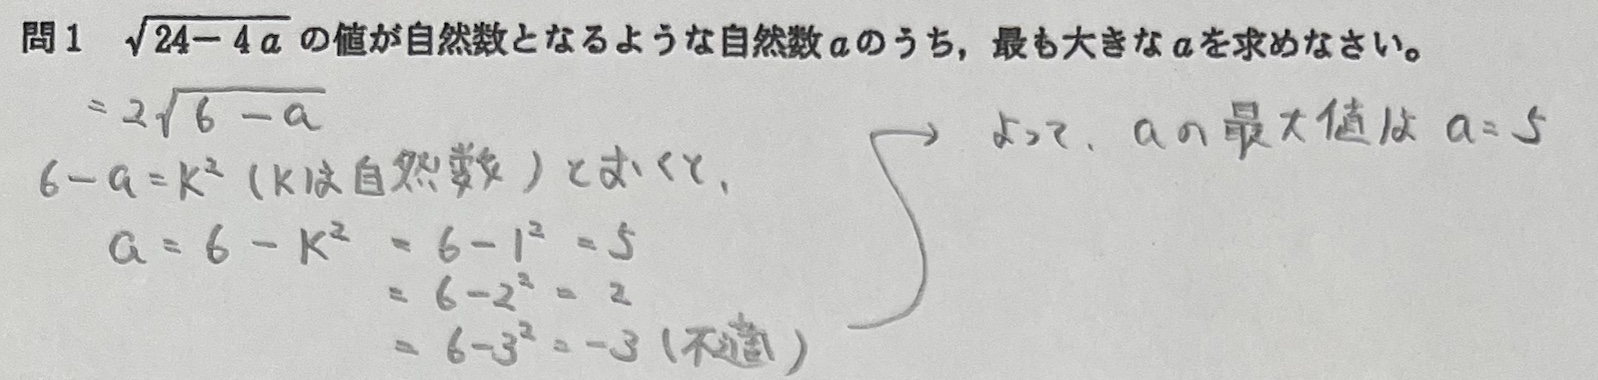 問1 √24−4a の値が自然数となるような自然数aのうち，最も大きなaを求めなさい。
= 2√6−a
6−a=K²（Kは自然数）とおくと、
a = 6 − K² = 6−1² = 5
= 6−2² = 2
= 6−3² = −3（不適）
→ よって、aの最大値は a=5